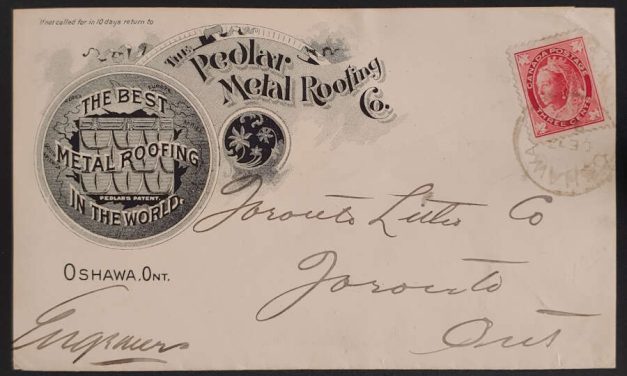 If not called for in 10 days return to
The
Pedlar
Metal Roofing
Co.
THE BEST
METAL ROOFING
PEDLAR'S PATENT.
IN THE WORLD.
OSHAWA, ONT.
CANADA POSTAGE
THREE CENTS
OSHAWA
DE 12
Toronto Litho Co
Toronto
Ont
Engravers